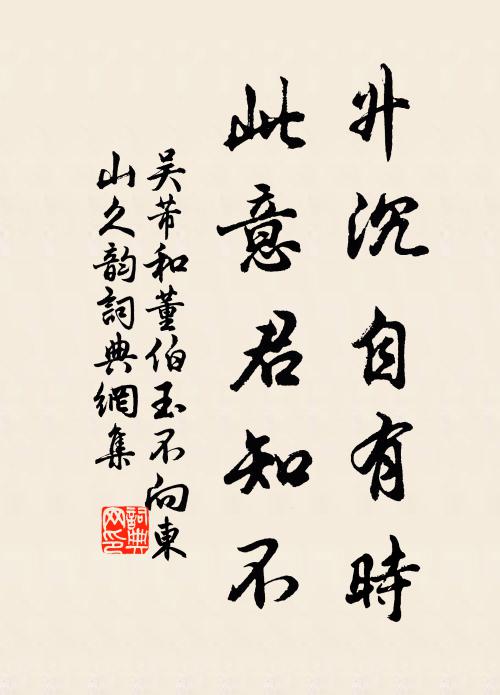 升沉自有時
此意君知不
吴芾和董伯玉不向東
山久韵詞典網集
詞典
网印